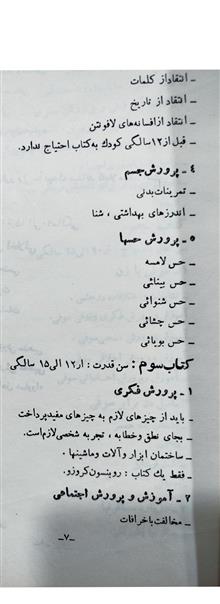 ـ انتقاد از کلمات
ـ انتقاد از تاریخ
ـ انتقاد از افسانه‌های لافونتن
ـ قبل از ۱۲ سالگی کودک به کتاب احتیاج ندارد.
۴ ـ پرورش جسم
ـ تمرینات بدنی
ـ اندرزهای بهداشتی ، شنا
۵ ـ پرورش حسها
ـ حس لامسه
ـ حس بینائی
ـ حس شنوائی
ـ حس چشائی
ـ حس بویائی
کتاب سوم : سن قدرت : از ۱۲ الی ۱۵ سالگی
۱ ـ پرورش فکری
ـ باید از چیزهای لازم به چیزهای مفید پرداخت
ـ بجای نطق و خطابه ، تجربه شخصی لازم است.
ـ ساختمان ابزار و آلات و ماشینها .
ـ فقط یك کتاب : روبنسون کروزو.
۲ ـ آموزش و پرورش اجتماعی
ـ مخالفت با خرافات
ـ۷ـ